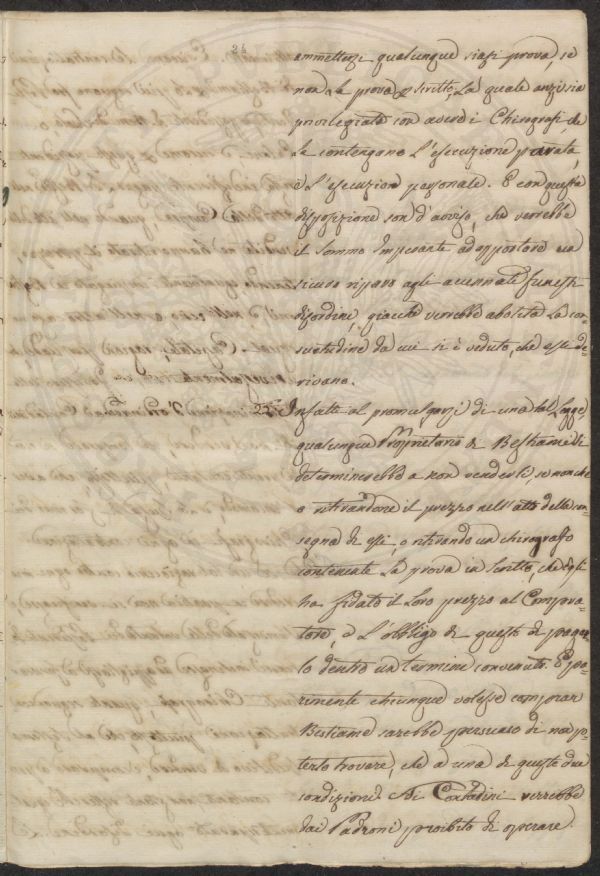 24
ammettersi qualunque siasi prova, se
non La prova p Scritto, La quale anzi sia
privilegiata con avere i Chirografi, che
La contengono L'esecuzione parata,
e L'esecuzione personale. E con questa
disposizione son d'avviso, che verrebbe
il Sommo Imperante ad apportare un
sicuro riparo agli accennati funesti
disordini, giacchè verrebbe abolita La con-
suetudine da cui si è veduto, che essi de-
rivano.
Infatti al promulgarsi di una tal Legge,
qualunque Proprietario di Bestiame si
determinerebbe a non venderli, se non che
o ritirandone il prezzo nell'atto della con-
segna di essi, o ritirando un chirografo
contenente La prova in Scritto, che Egli
ha fidato il Loro prezzo al Compra-
tore, e L'obbligo di questo di pagar-
lo dentro un termine convenuto. E pa-
rimente chiunque volesse comprar
Bestiame sarebbe persuaso di non po-
terlo trovare, che a una di queste due
condizioni. Ai Contadini verrebbe
dai Padroni proibito di operare